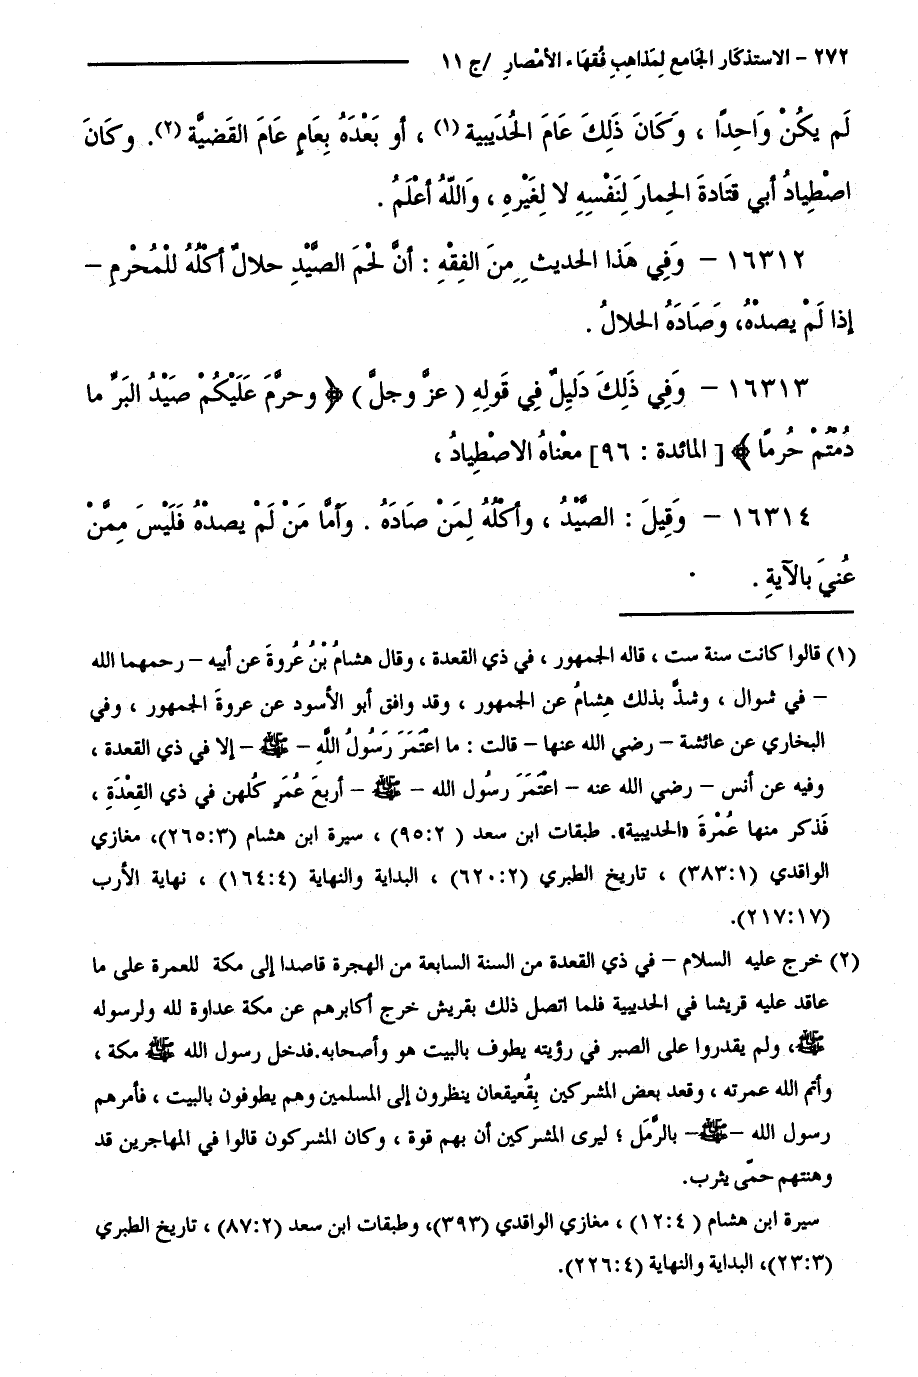 ٢٧٢ – الاستذكار الجَامع لِمَذاهِبِ فُقهَاء الأمْصارِ / ج ١١
لَم يكُنْ وَاحِدًا ، وَكَانَ ذَلِكَ عَامَ الحُدَيبية (١) ، أو بَعْدَهُ بِعَامٍ عَامَ القَضيَّة (٢). وكَانَ
اصْطِيادُ أبي قتَادةَ الحِمارَ لِنَفْسِهِ لا لِغَيْرِهِ ، وَاللّهُ أعْلَمُ .
١٦٣١٢ – وَفِي هَذا الحديث ِمِنَ الفِقْهِ : أنَّ لَحْمَ الصَّيْدِ حلالٌ أكْلُهُ للْمُحْرمِ –
إذا لَمْ يصدْهُ، وَصَادَهُ الحلالُ .
١٦٣١٣ – وَفِي ذَلِكَ دَلِيِلٌ فِي قَولِهِ ( عزَّ وجلَّ ) ﴿ وحرَّمَ عَلَيْكُمْ صَيْدُ البَرِّ ما
دُمْتُمْ حُرمًا ﴾ [ المائدة : ٩٦] معْناهُ الاصْطِيادُ ،
١٦٣١٤ – وَقِيلَ : الصَّيْدُ ، وأكْلُهُ لِمَنْ صَادَهُ . وَأمَّا مَنْ لَمْ يصدْهُ فَلَيْسَ مِمَّنْ
عُنيَ بالآيةِ .
(١) قالوا كانت سنة ست ، قاله الجمهور ، في ذي القعدة ، وقال هشامُ بْنُ عُروةَ عن أبيه – رحمهما الله
– في شوال ، وشذَّ بذلك هِشامُ عن الجمهور ، وقد وافق أبو الأسود عن عروةَ الجمهور ، وفي
البخاري عن عائشة – رضي الله عنها – قالت : ما اعْتَمَرَ رَسُولُ اللَّهِ – ﷺ – إلا في ذي القعدة ،
وفيه عن أنس – رضي الله عنه – اعْتَمَرَ رسُول الله – ﷺ – أربعَ عُمَرٍ كُلهن في ذي القِعْدَةِ ،
فَذكر منها عُمْرةَ «الحديبية». طبقات ابن سعد ( ٢:٩٥) ، سيرة ابن هشام (٣:٢٦٥)، مغازي
الواقدي (١:٣٨٣) ، تاريخ الطبري (٢:٦٢٠) ، البداية والنهاية (٤:١٦٤) ، نهاية الأرب
(١٧:٢١٧).
(٢) خرج عليه السلام – في ذي القعدة من السنة السابعة من الهجرة قاصدا إلى مكة للعمرة على ما
عاقد عليه قريشا في الحديبية فلما اتصل ذلك بقريش خرج أكابرهم عن مكة عداوة لله ولرسوله
ﷺ، ولم يقدروا على الصبر في رؤيته يطوف بالبيت هو وأصحابه.فدخل رسول الله ﷺ مكة ،
وأتم الله عمرته ، وقعد بعض المشركين بِقُعيقعان ينظرون إلى المسلمين وهم يطوفون بالبيت ، فأمرهم
رسول الله –ﷺ– بالرَّمَل ؛ ليرى المشركين أن بهم قوة ، وكان المشركون قالوا في المهاجرين قد
وهنتهم حمّى يثرب.
سيرة ابن هشام ( ٤:١٢) ، مغازي الواقدي (٣٩٣)، وطبقات ابن سعد (٢:٨٧) ، تاريخ الطبري
(٣:٢٣)، البداية والنهاية (٤:٢٢٦).